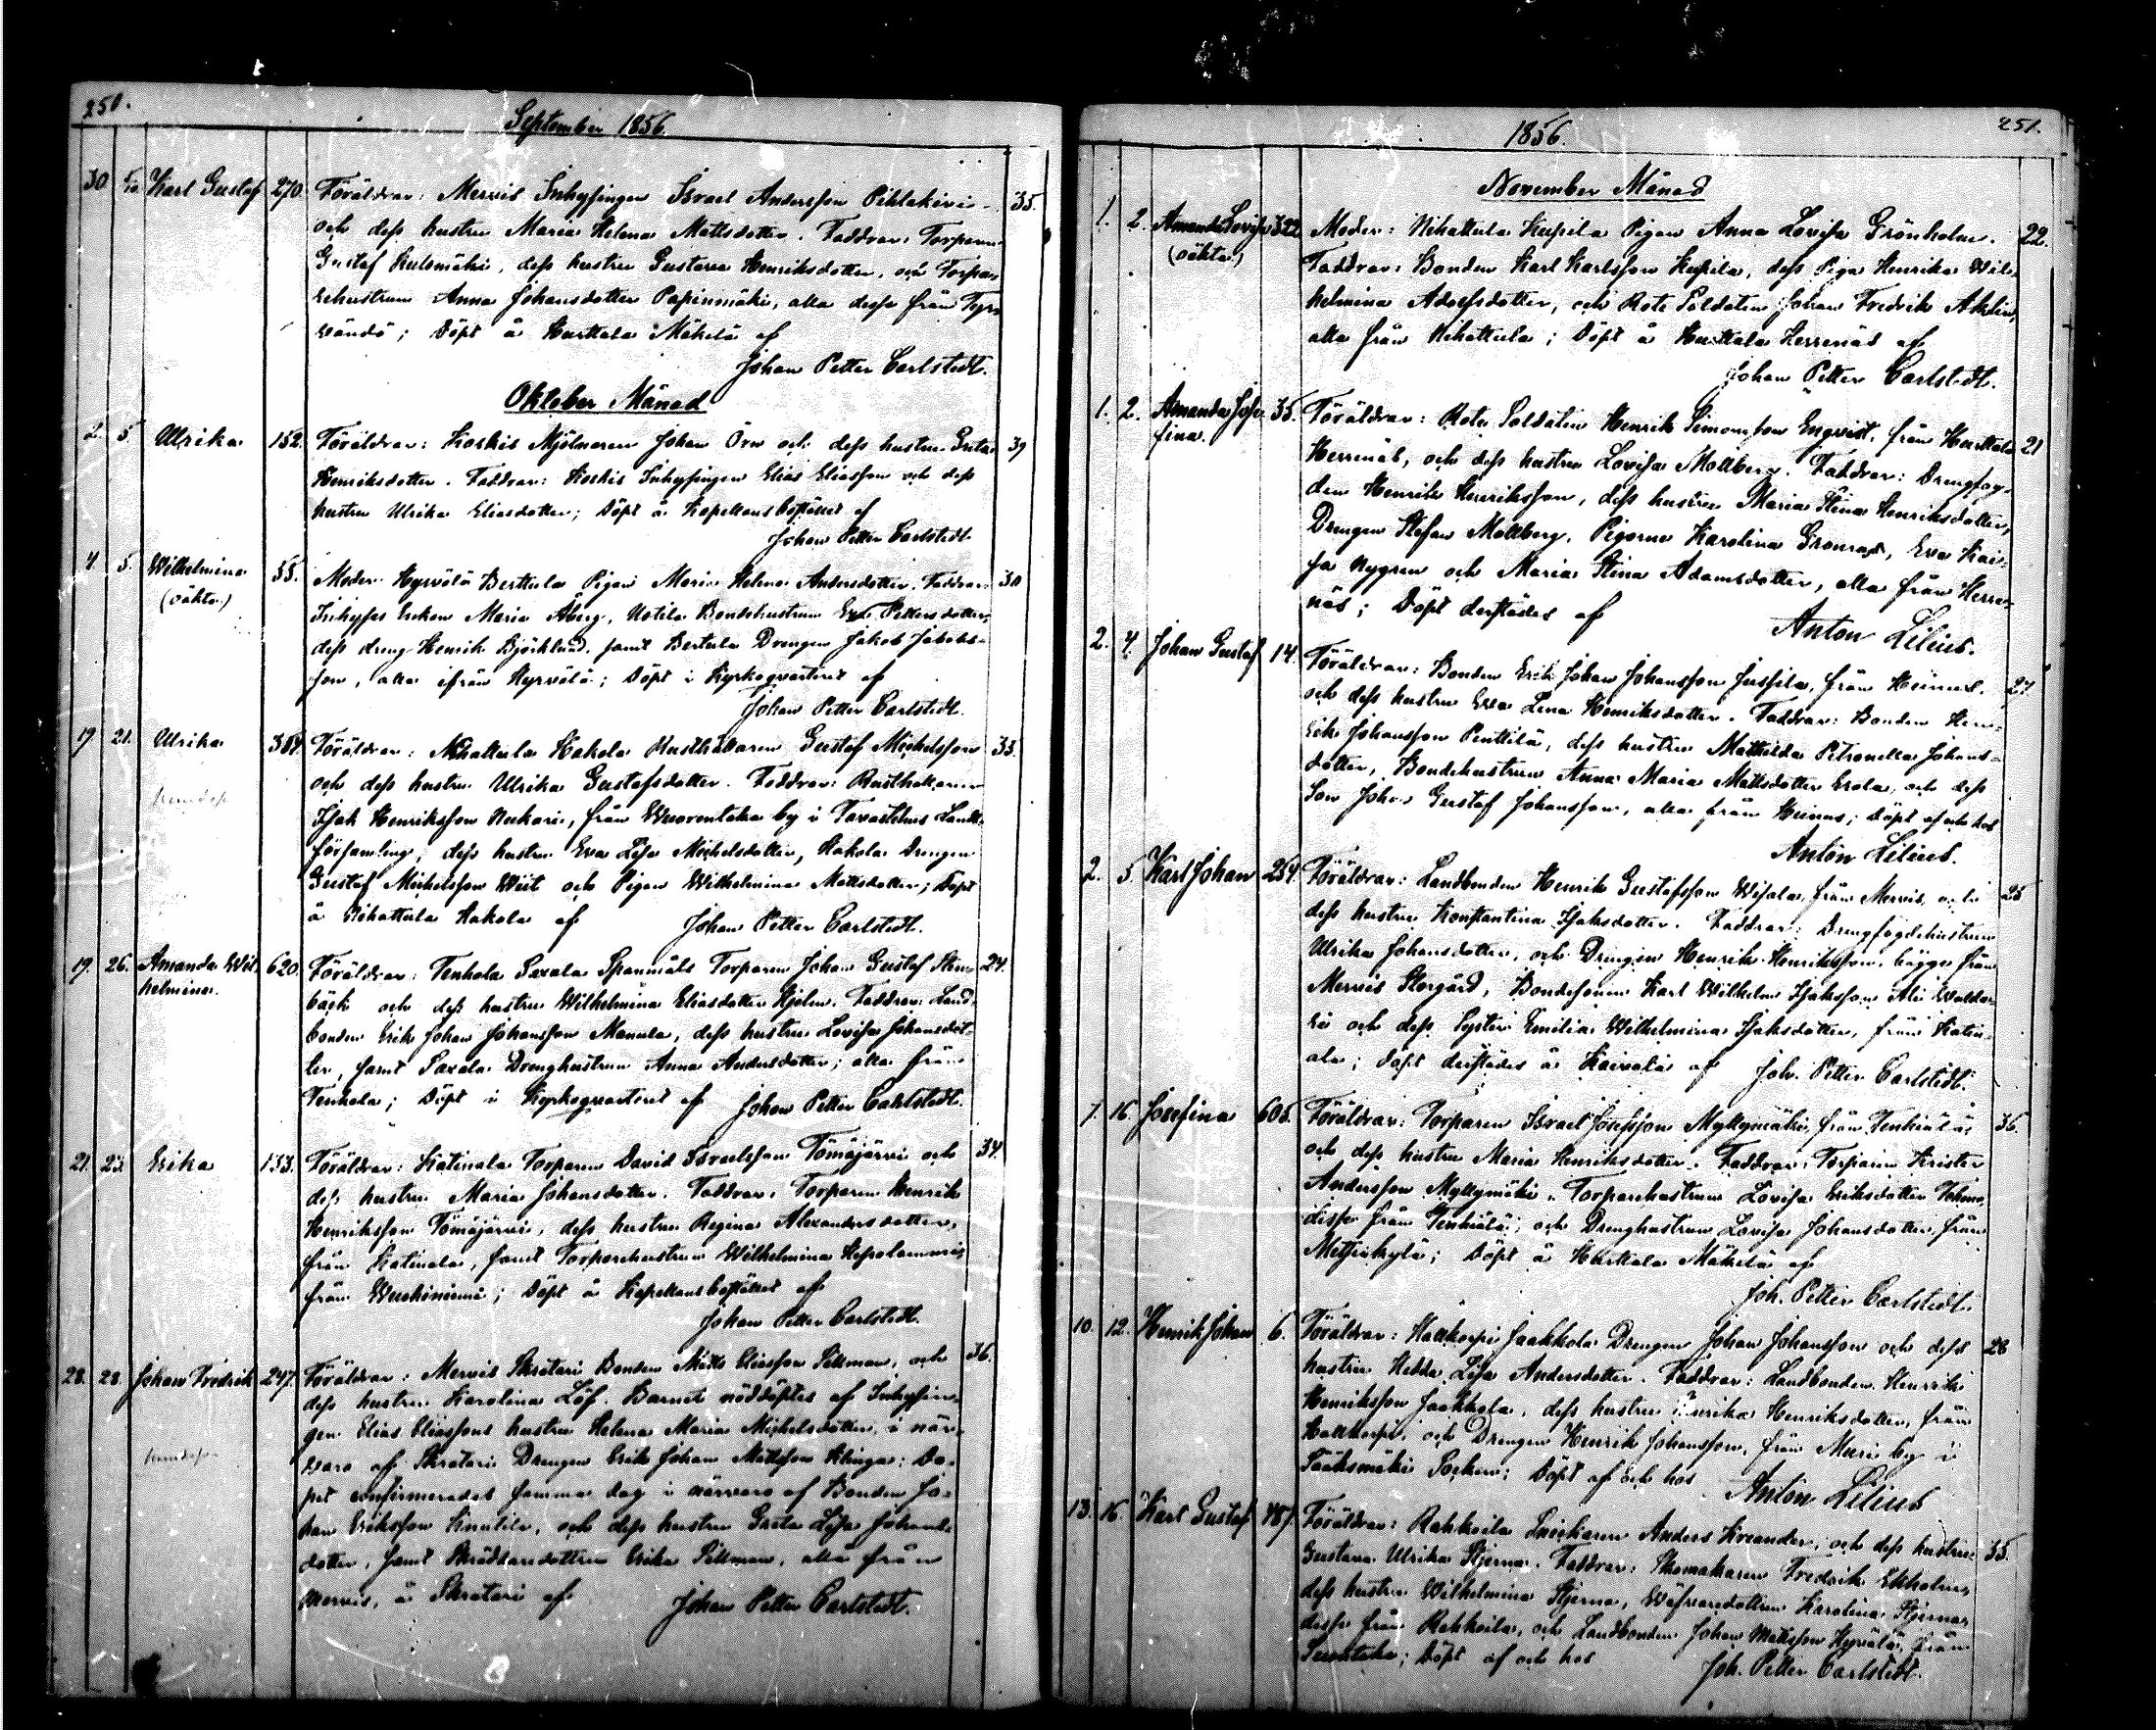 250.
September 1856.
30 5/10 Karl Gustaf 270. Föräldrar: Mervis Inhysingen Israel Andersson Pihlakivi 35.
och dess hustru Maria Helena Mattsdotter. Faddrar: Torparen
Gustaf Kulomäki, dess hustru Gustava Henriksdotter, och Torpa-
rehustrun Anna Johansdotter Papinmäki, alla desse från Tyr-
vändö; Döpt å Hurttala Mäkelä af
Johan Petter Carlstedt.
Oktober Månad
2. 5. Ulrika 152. Föräldrar: Koskis Mjölnaren Johan Örn och dess hustru Greta 39
Henriksdotter. Faddrar: Koskis Inhysingen Elias Eliasson och dess
hustru Ulrika Eliasdotter; Döpt å Kapellansbostället af
Johan Petter Carlstedt.
4. 5. Wilhelmina 55. Moder: Hyrvälä Berttula Pigan Maria Helena Andersdotter. Faddrar: 30
(oäkta) Inhyses Enkan Maria Åberg, Uotila Bondehustrun Eva Pettersdotter,
dess dreng Henrik Björklund, samt Bertula Drengen Jakob Jakobs-
son, alla ifrån Hyrvälä; Döpt i Kyrkoqvarteret af
Johan Petter Carlstedt.
19 21. Ulrika 384. Föräldrar: Nihattula Kakola Rusthållaren Gustaf Michelsson 33.
och dess hustru Ulrika Gustafsdotter. Faddrar: Rusthållaren
Isak Henriksson Uukari, från Wuorentaka by i Tavastehus Lands-
församling, dess hustru Eva Lisa Michelsdotter, Kakola Drengen
Gustaf Michelsson Wiit och Pigan Wilhelmina Mattsdotter; Döpt
å Nihattula Kakola af Johan Petter Carlstedt.
19. 26. Amanda Wil- 620. Föräldrar: Tenhola Saxala Spannmåls Torparen Johan Gustaf Sten- 24.
helmina. bäck och dess hustru Wilhelmina Eliasdotter Hjelm. Faddrar: Land-
bonden Erik Johan Johansson Manula, dess hustru Lovisa Johansdot-
ter, samt Saxala Drenghustrun Anna Andersdotter; alla från
Tenhola; Döpt i Kyrkoqvarteret af Johan Petter Carlstedt.
21. 23. Erika 133. Föräldrar: Katinala Torparen David Israelsson Tömäjärvi och 34.
dess hustru Maria Johansdotter. Faddrar: Torparen Henrik
Henriksson Tömäjärvi, dess hustru Regina Alexandersdotter,
från Katinala, samt Torparehustrun Wilhelmina
från Wuohiniemi; Döpt å Kapellansbostället af
Johan Petter Carlstedt.
28. 28. Johan Fredrik 247. Föräldrar: Mervis Skrätari Bonden Matts Eliasson Sillman, och 36.
dess hustru Karolina Löf. Barnet nöddöptes af Inhysin-
gen Elias Eliassons hustru Helena Maria Michelsdotter, i när-
varo af Skrätari Drengen Erik Johan Mattsson Klinga: Do-
pet confirmerades samma dag i närvaro af Bonden Jo-
han Eriksson Knuttila, och dess hustru Greta Lisa Johans-
dotter, samt Skräddaredottren Erika Sillman, alla från
Mervis, å Skrätari af Johan Petter Carlstedt.
251.
1856.
November Månad
1. 2. Amanda Lovisa 322 Moder: Nihattula Kuspila Pigan Anna Lovisa Grönholm. 22.
(oäkta) Faddrar: Bonden Karl Karlsson Kuspila, dess Piga Henrika Wil-
helmina Adolfsdotter, och Rote Soldaten Johan Fredrik Ahlin,
alla från Nihattula; Döpt å Hurttala Herrenäs af
Johan Petter Carlstedt.
1. 2. Amanda Jose- 35. Föräldrar: Rote Soldaten Henrik Simonsson Enqvist, från Hurttala 21
fina. Herrenäs, och dess hustru Lovisa Mollberg. Faddrar: Drengfog-
den Henrik Henriksson, dess hustru Maria Stina Henriksdotter,
Drengen Stefan Mollberg, Pigorne Karolina Grönroos, Eva Kai-
sa Nygren och Maria Stina Adamsdotter, alla från Herre-
näs; Döpt derstädes af Anton Lilius.
2. 4. Johan Gustaf 14. Föräldrar: Bonden Erik Johan Johansson Jussila, från Heinus. 27
och dess hustru Eva Lena Henriksdotter. Faddrar: Bonden Hen-
rik Johansson Penttilä, dess hustru Mathilda Petronella Johans-
dotter, Bondehustrun Anna Maria Mattsdotter Erola, och dess
Son Johan Gustaf Johansson, alla från Heinus; Döpt af och hos
Anton Lilius.
2. 5. Karl Johan 254. Föräldrar: Landbonden Henrik Gustafsson Wisala, från Mervis, och 25
dess hustru Konstantina Isaksdotter. Faddrar: Drengfogdehustrun
Ulrika Johansdotter, och Drengen Henrik Henriksson, bägge från
Mervis Storgård, Bondesonen Karl Wilhelm Isaksson Ali Waldar-
ri och dess Syster Emilia Wilhelmina Isaksdotter, från Katin-
ala; Döpt derstädes å Kaivola af Joh. Petter Carlstedt.
7. 16. Josefina 605. Föräldrar: Torparen Israel Josefsson Myllymäki, från Tenhiälä, 36.
och dess hustru Maria Henriksdotter. Faddrar: Torparen Krister
Andersson Myllymäki, Torparehustrun Lovisa Eriksdotter
desse från Tenhiälä, och Drenghustrun Lovisa Johansdotter från
Metsänkylä; Döpt å Hurttala Mäkelä af
Joh. Petter Carlstedt.
10. 12. Henrik Johan 6. Föräldrar: Hattkorpi Jaakkola Drengen Johan Johansson och dess 28
hustru Hedda Lisa Andersdotter. Faddrar: Landbonden Henrik
Henriksson Jaakkola, dess hustru Henrika Henriksdotter, från
Hattkorpi, och Drengen Henrik Johansson, från Muri by i
Sääksmäki Socken; Döpt af och hos Anton Lilius
13. 16. Karl Gustaf 487. Föräldrar: Rahkoila Snickaren Anders Kreander, och dess hustru 35.
Gustava Ulrika Stjerna. Faddrar: Skomakaren Fredrik Ekholm,
dess hustru Wilhelmina Stjerna, Wäfvaredottren Karolina Stjerna,
desse från Rahkoila, och Landbonden Johan Mattsson Hyvälä, från
Suontaka; Döpt af och hos Joh. Petter Carlstedt.